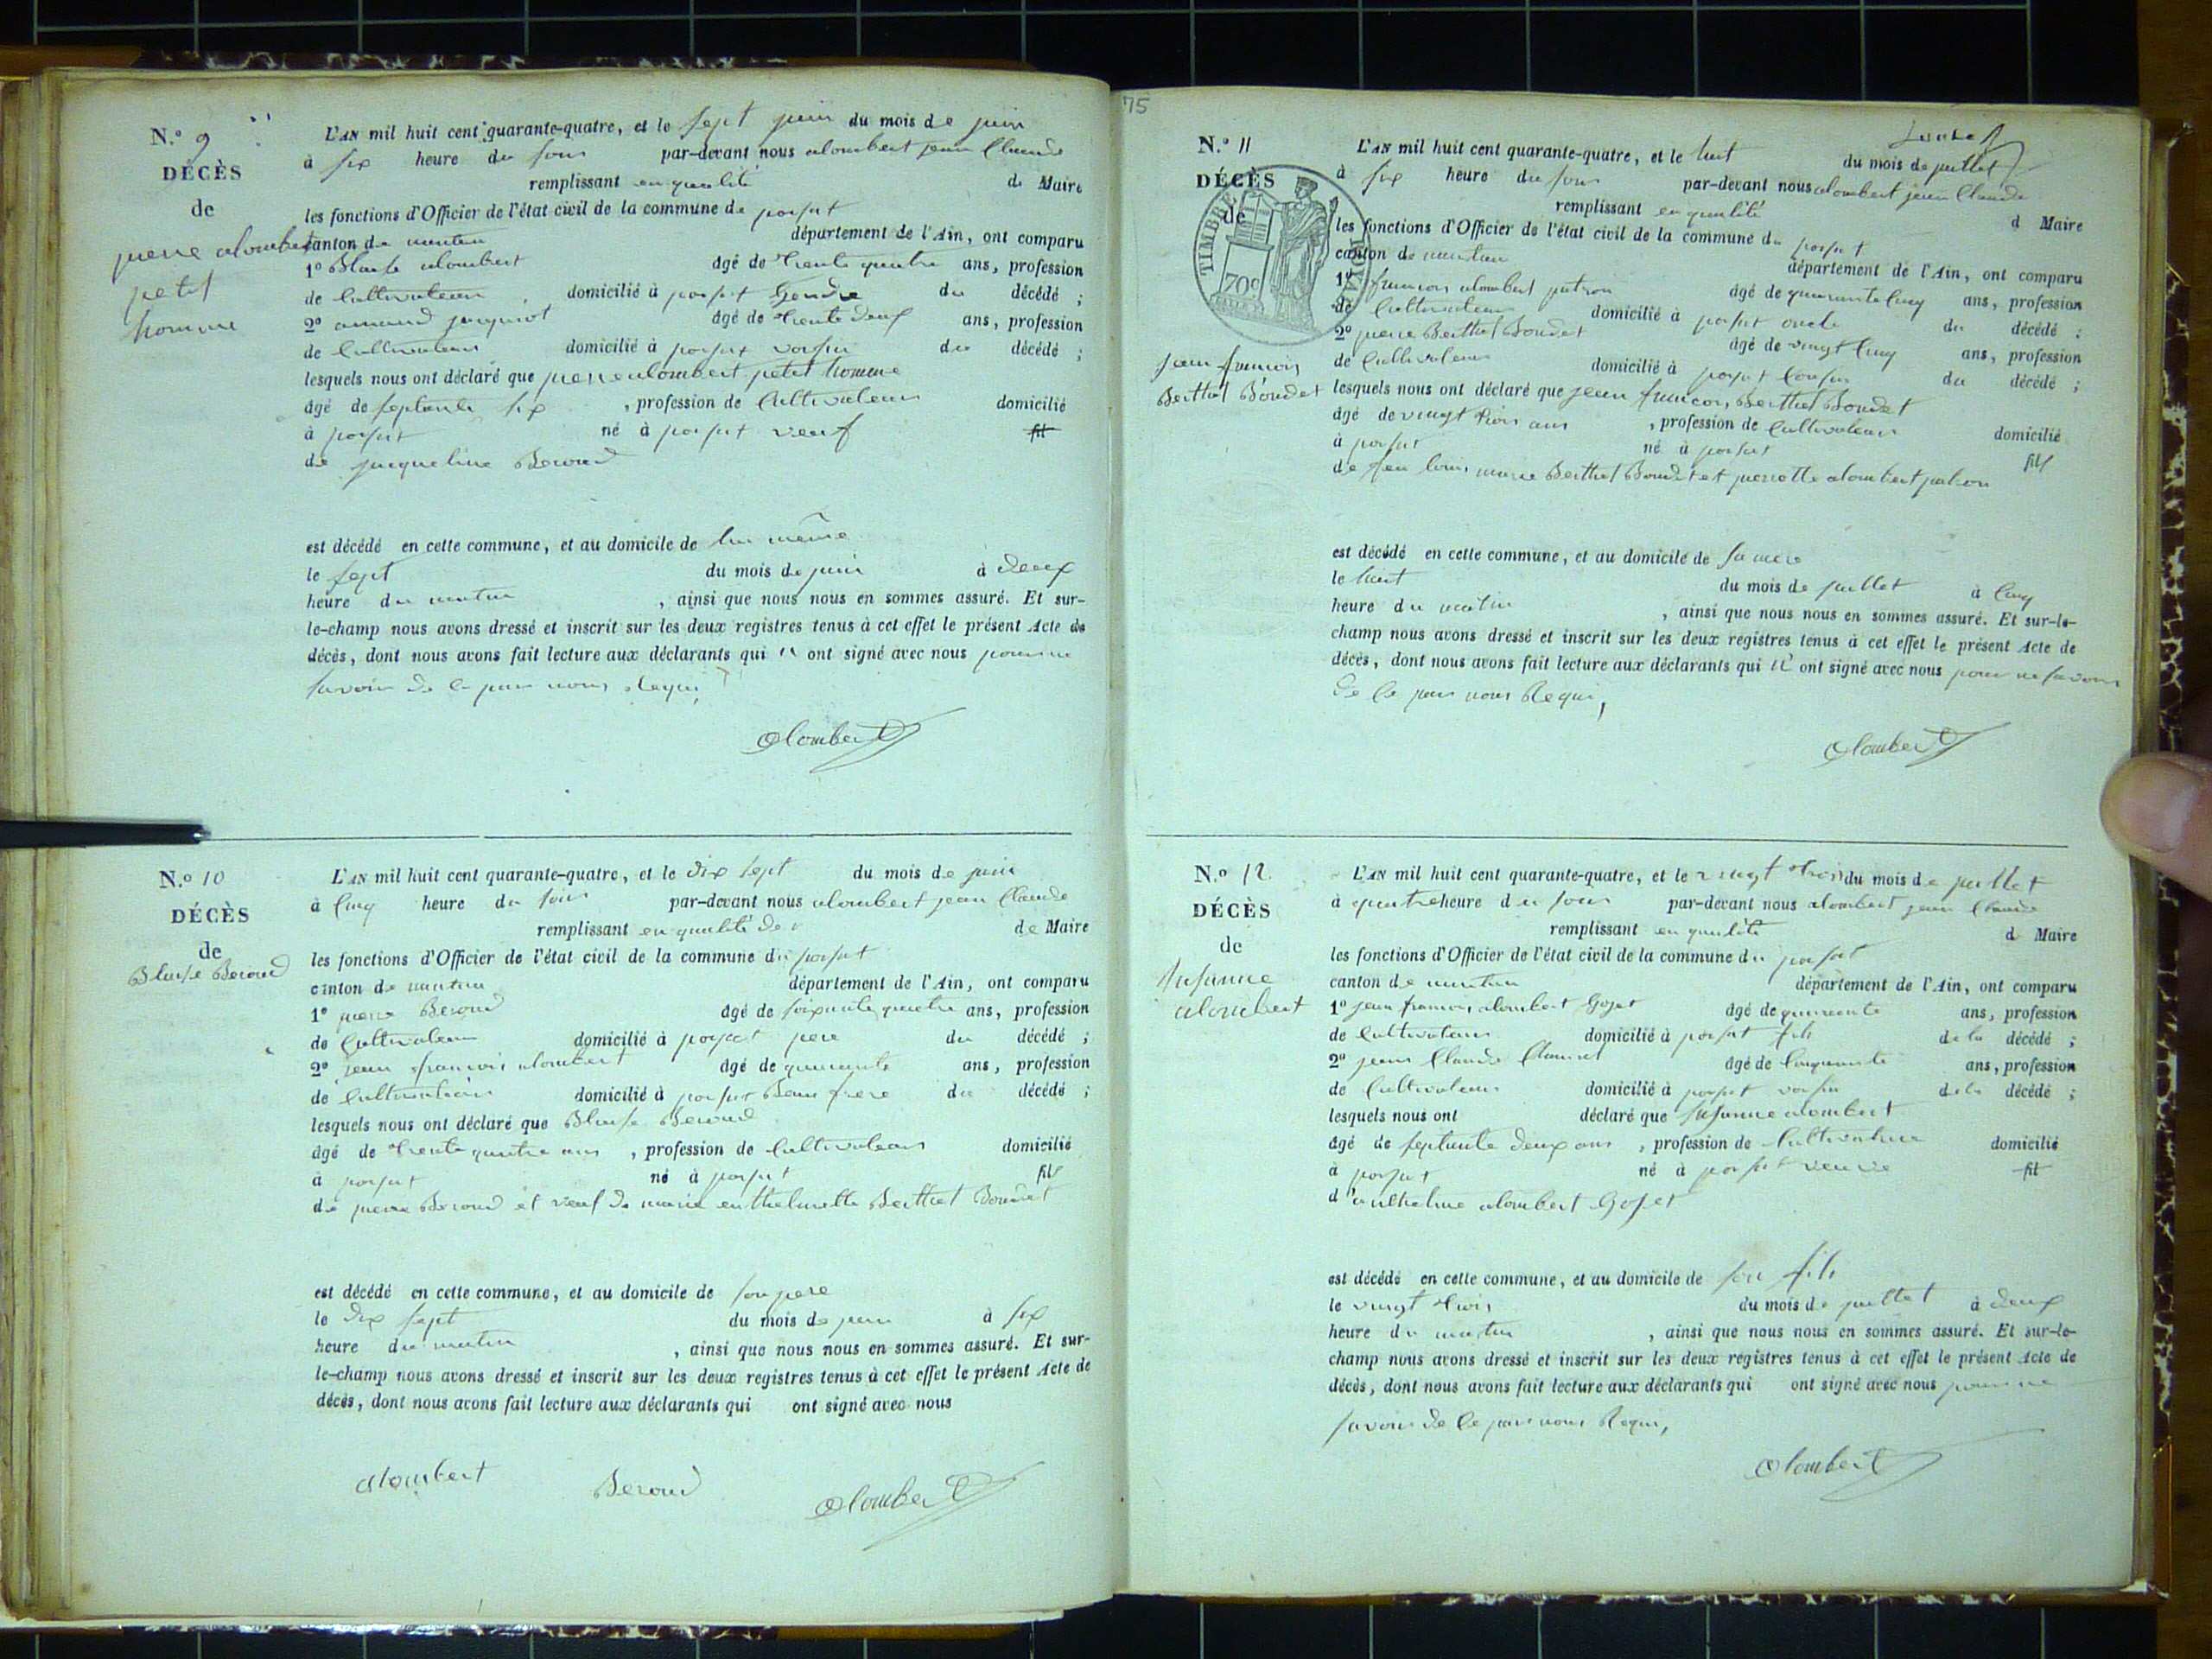 N.o 9
DÉCÈS
de
pierre alombert
petit
homme
L'AN mil huit cent quarante-quatre, et le sept juin du mois de juin
à six heure du soir par-devant nous alombert jean Claude
remplissant en qualité de Maire
les fonctions d'Officier de l'état civil de la commune de
canton de département de l'Ain, ont comparu
1o Blaise alombert âgé de trente quatre ans, profession
de Cultivateur domicilié à Gendre du décédé ;
2o armand âgé de trente deux ans, profession
de Cultivateur domicilié à voisin du décédé ;
lesquels nous ont déclaré que pierre alombert petit homme
âgé de septante six , profession de Cultivateur domicilié
à né à veuf fil
de jacqueline Beroud
est décédé en cette commune, et au domicile de lui même
le sept du mois de juin à deux
heure du matin , ainsi que nous nous en sommes assuré. Et sur-
le-champ nous avons dressé et inscrit sur les deux registres tenus à cet effet le présent Acte de
décès, dont nous avons fait lecture aux déclarants qui n ont signé avec nous pour ne
savoir de ce par nous Requi,
alombert
N.o 10
DÉCÈS
de
Blaise Beroud
L'AN mil huit cent quarante-quatre, et le dix sept du mois de juin
à cinq heure du soir par-devant nous alombert jean Claude
remplissant en qualité de de Maire
les fonctions d'Officier de l'état civil de la commune du
canton de département de l'Ain, ont comparu
1o pierre Beroud âgé de soixante quatre ans, profession
de Cultivateur domicilié à pere du décédé ;
2o jean francois alombert âgé de quarante ans, profession
de Cultivateur domicilié à Beau frere du décédé ;
lesquels nous ont déclaré que Blaise Beroud
âgé de trente quatre ans , profession de Cultivateur domicilié
à né à fils
de pierre Beroud et veuf de marie Berthet Boudet
est décédé en cette commune, et au domicile de son pere
le dix sept du mois de juin à six
heure du matin , ainsi que nous nous en sommes assuré. Et sur-
le-champ nous avons dressé et inscrit sur les deux registres tenus à cet effet le présent Acte de
décès, dont nous avons fait lecture aux déclarants qui ont signé avec nous
alombert Beroud alombert
75
N.o 11
DÉCÈS
de
TIMBRE ROYAL
70c
jean francois
Berthet Boudet
L'AN mil huit cent quarante-quatre, et le huit du mois de juillet
à six heure du soir par-devant nous alombert jean Claude
remplissant en qualité d Maire
les fonctions d'Officier de l'état civil de la commune du
canton de département de l'Ain, ont comparu
1o francois alombert patron âgé de quarante cinq ans, profession
de Cultivateur domicilié à oncle du décédé ;
2o pierre Berthet Boudet âgé de vingt cinq ans, profession
de Cultivateur domicilié à Cousin du décédé ;
lesquels nous ont déclaré que jean francois Berthet Boudet
âgé de vingt trois ans , profession de Cultivateur domicilié
à né à fils
de feu louis marie Berthet Boudet et pierrette alombert patron
est décédé en cette commune, et au domicile de sa mere
le huit du mois de juillet à cinq
heure du matin , ainsi que nous nous en sommes assuré. Et sur-le-
champ nous avons dressé et inscrit sur les deux registres tenus à cet effet le présent Acte de
décès, dont nous avons fait lecture aux déclarants qui n' ont signé avec nous pour ne savoir
de ce par nous Requi,
alombert
N.o 12
DÉCÈS
de
Susanne
alombert
L'AN mil huit cent quarante-quatre, et le vingt trois du mois de juillet
à quatre heure du soir par-devant nous alombert jean Claude
remplissant en qualité d Maire
les fonctions d'Officier de l'état civil de la commune du
canton de département de l'Ain, ont comparu
1o jean francois alombert Gojet âgé de quarante ans, profession
de Cultivateur domicilié à fils de la décédé ;
2o jean Claude âgé de Cinquante ans, profession
de Cultivateur domicilié à voisin de la décédé ;
lesquels nous ont déclaré que Susanne alombert
âgé de septante deux ans , profession de Cultivatrice domicilié
à né à veuve fil
d'anthelme alombert Gojet
est décédé en cette commune, et au domicile de son fils
le vingt trois du mois de juillet à deux
heure du matin , ainsi que nous nous en sommes assuré. Et sur-le-
champ nous avons dressé et inscrit sur les deux registres tenus à cet effet le présent Acte de
décès, dont nous avons fait lecture aux déclarants qui ont signé avec nous pour ne
savoir de ce par nous Requi,
alombert